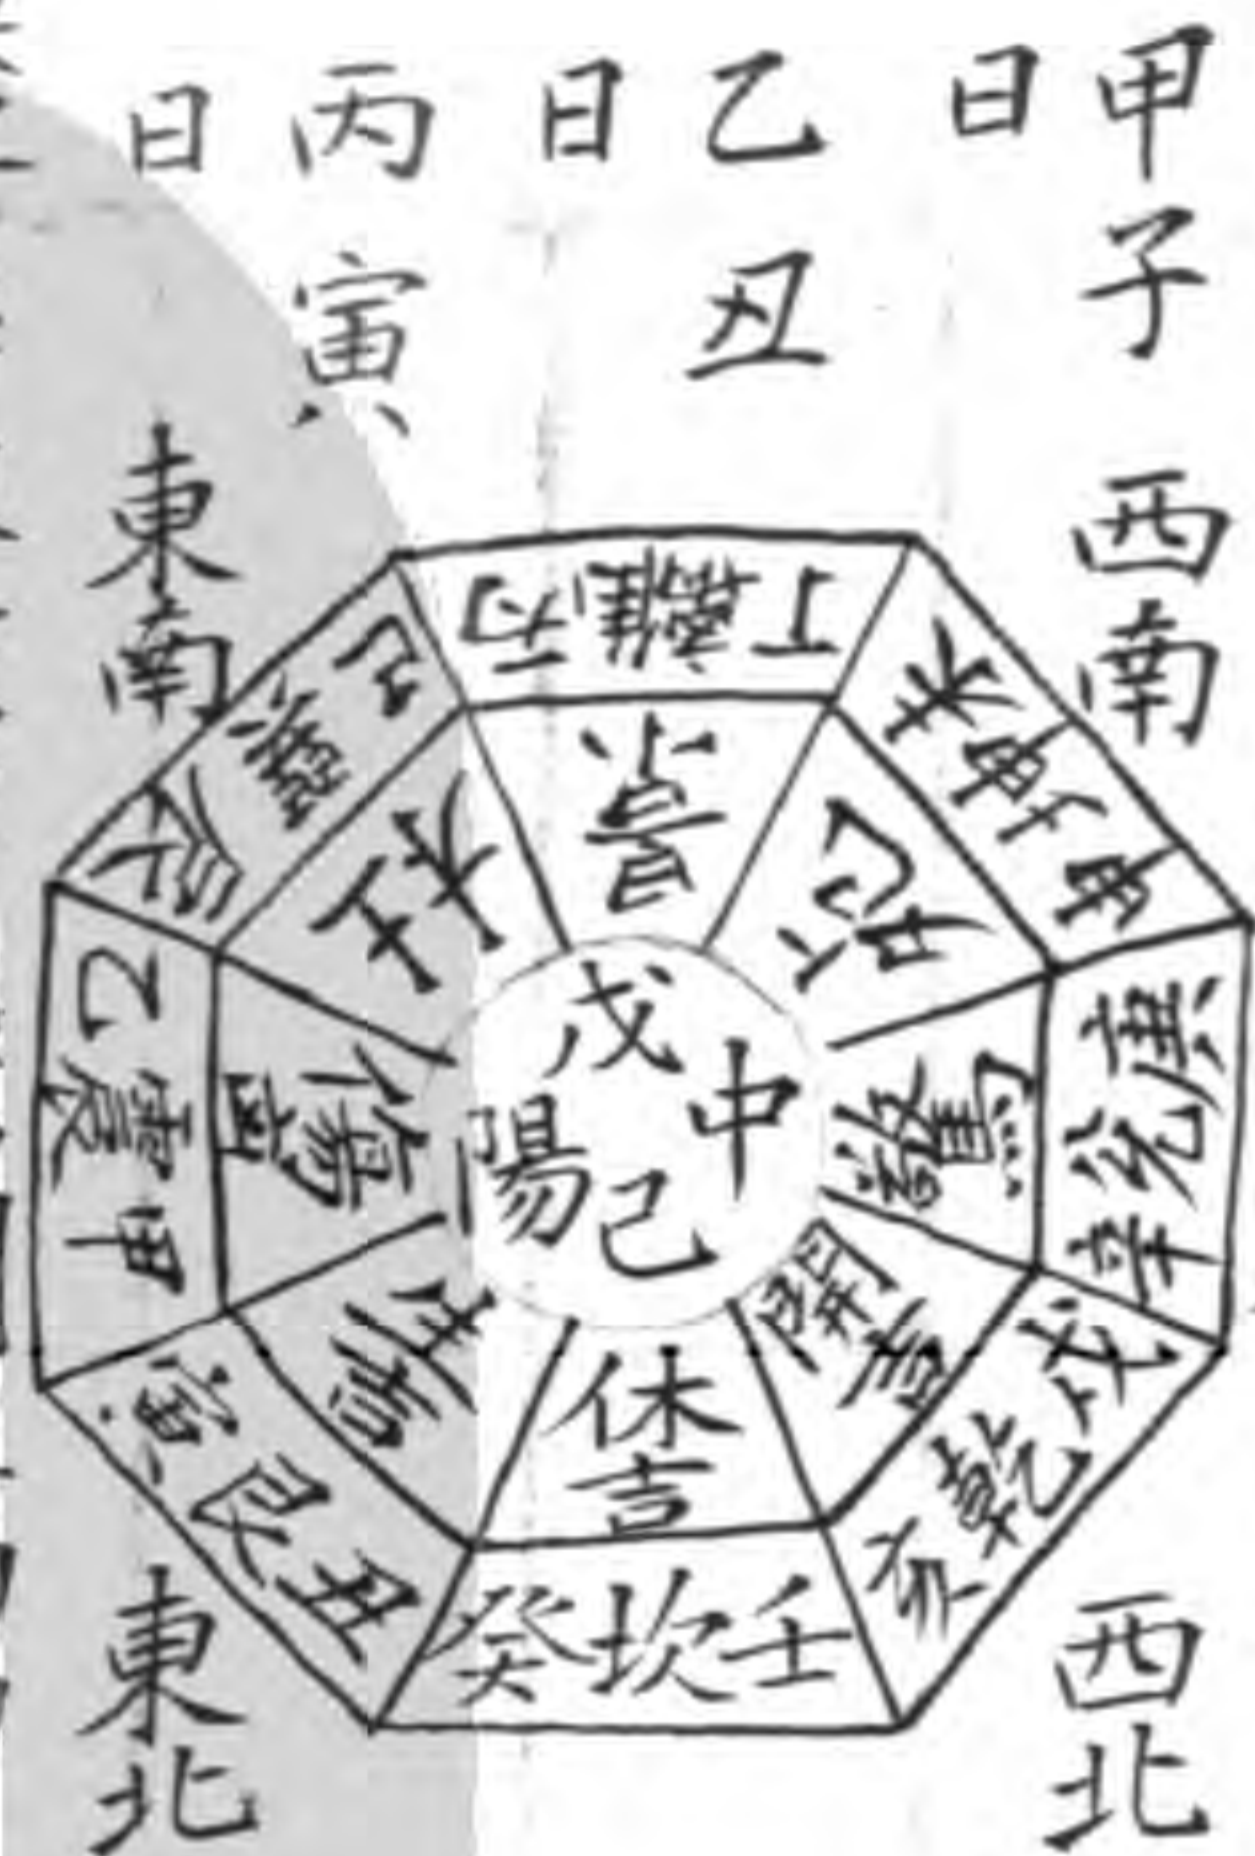 甲子日
乙丑日
丙寅日
西南
東南
丁離丙
未坤申
庚兌辛
戌乾亥
壬坎癸
丑艮寅
甲震乙
辰巽巳
景
死
驚
開吉
休吉
生吉
傷
杜
戊己
中
陽
西北
東北